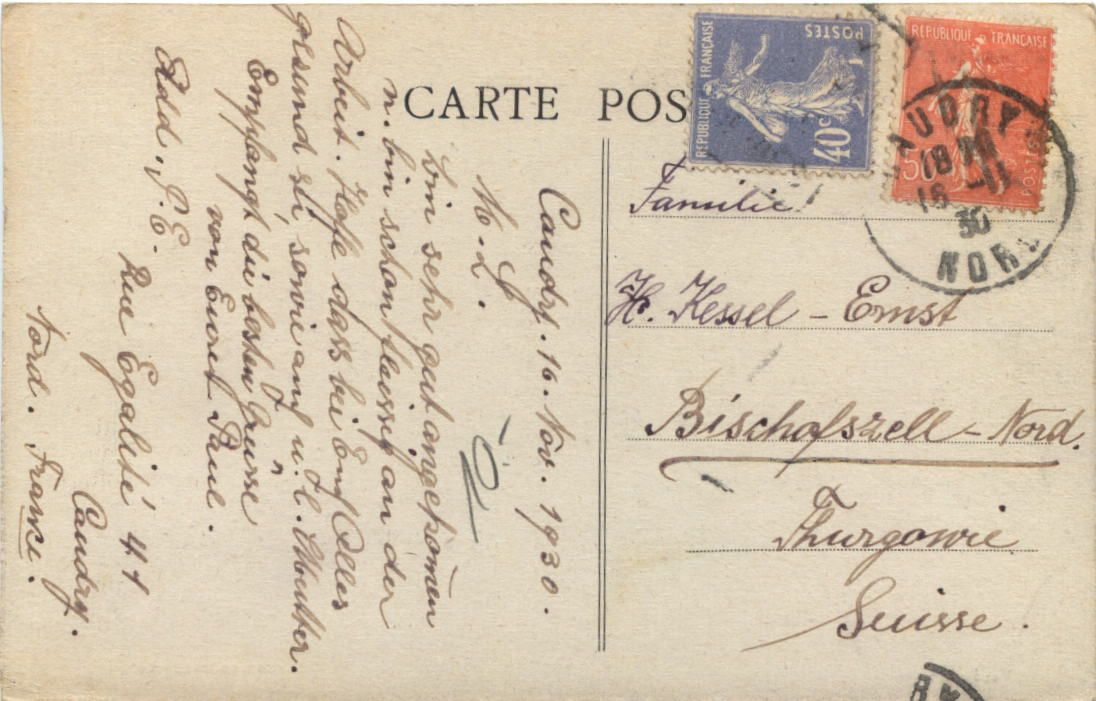 CARTE POS
REPUBLIQUE FRANÇAISE
POSTES
40c
REPUBLIQUE FRANÇAISE
POSTES
50c
CAUDRY
18
16 -11
30
NORD
Caudry. 16. Nov. 1930.
M. L.
bin sehr gut angekom̄en
u. bin schon fleissig an der
Arbeit. Hoffe dass bei Euch Alles
gesund sei, sowie auch u. l. Mutter.
Empfangt die besten Grüsse
von Eurer Paul.
Add. P. E.
Rue Egalité 41
Caudry.
Nord. France.
Familie
H. Kessel – Ernst
Bischofszell – Nord.
Thurgovie
Suisse.